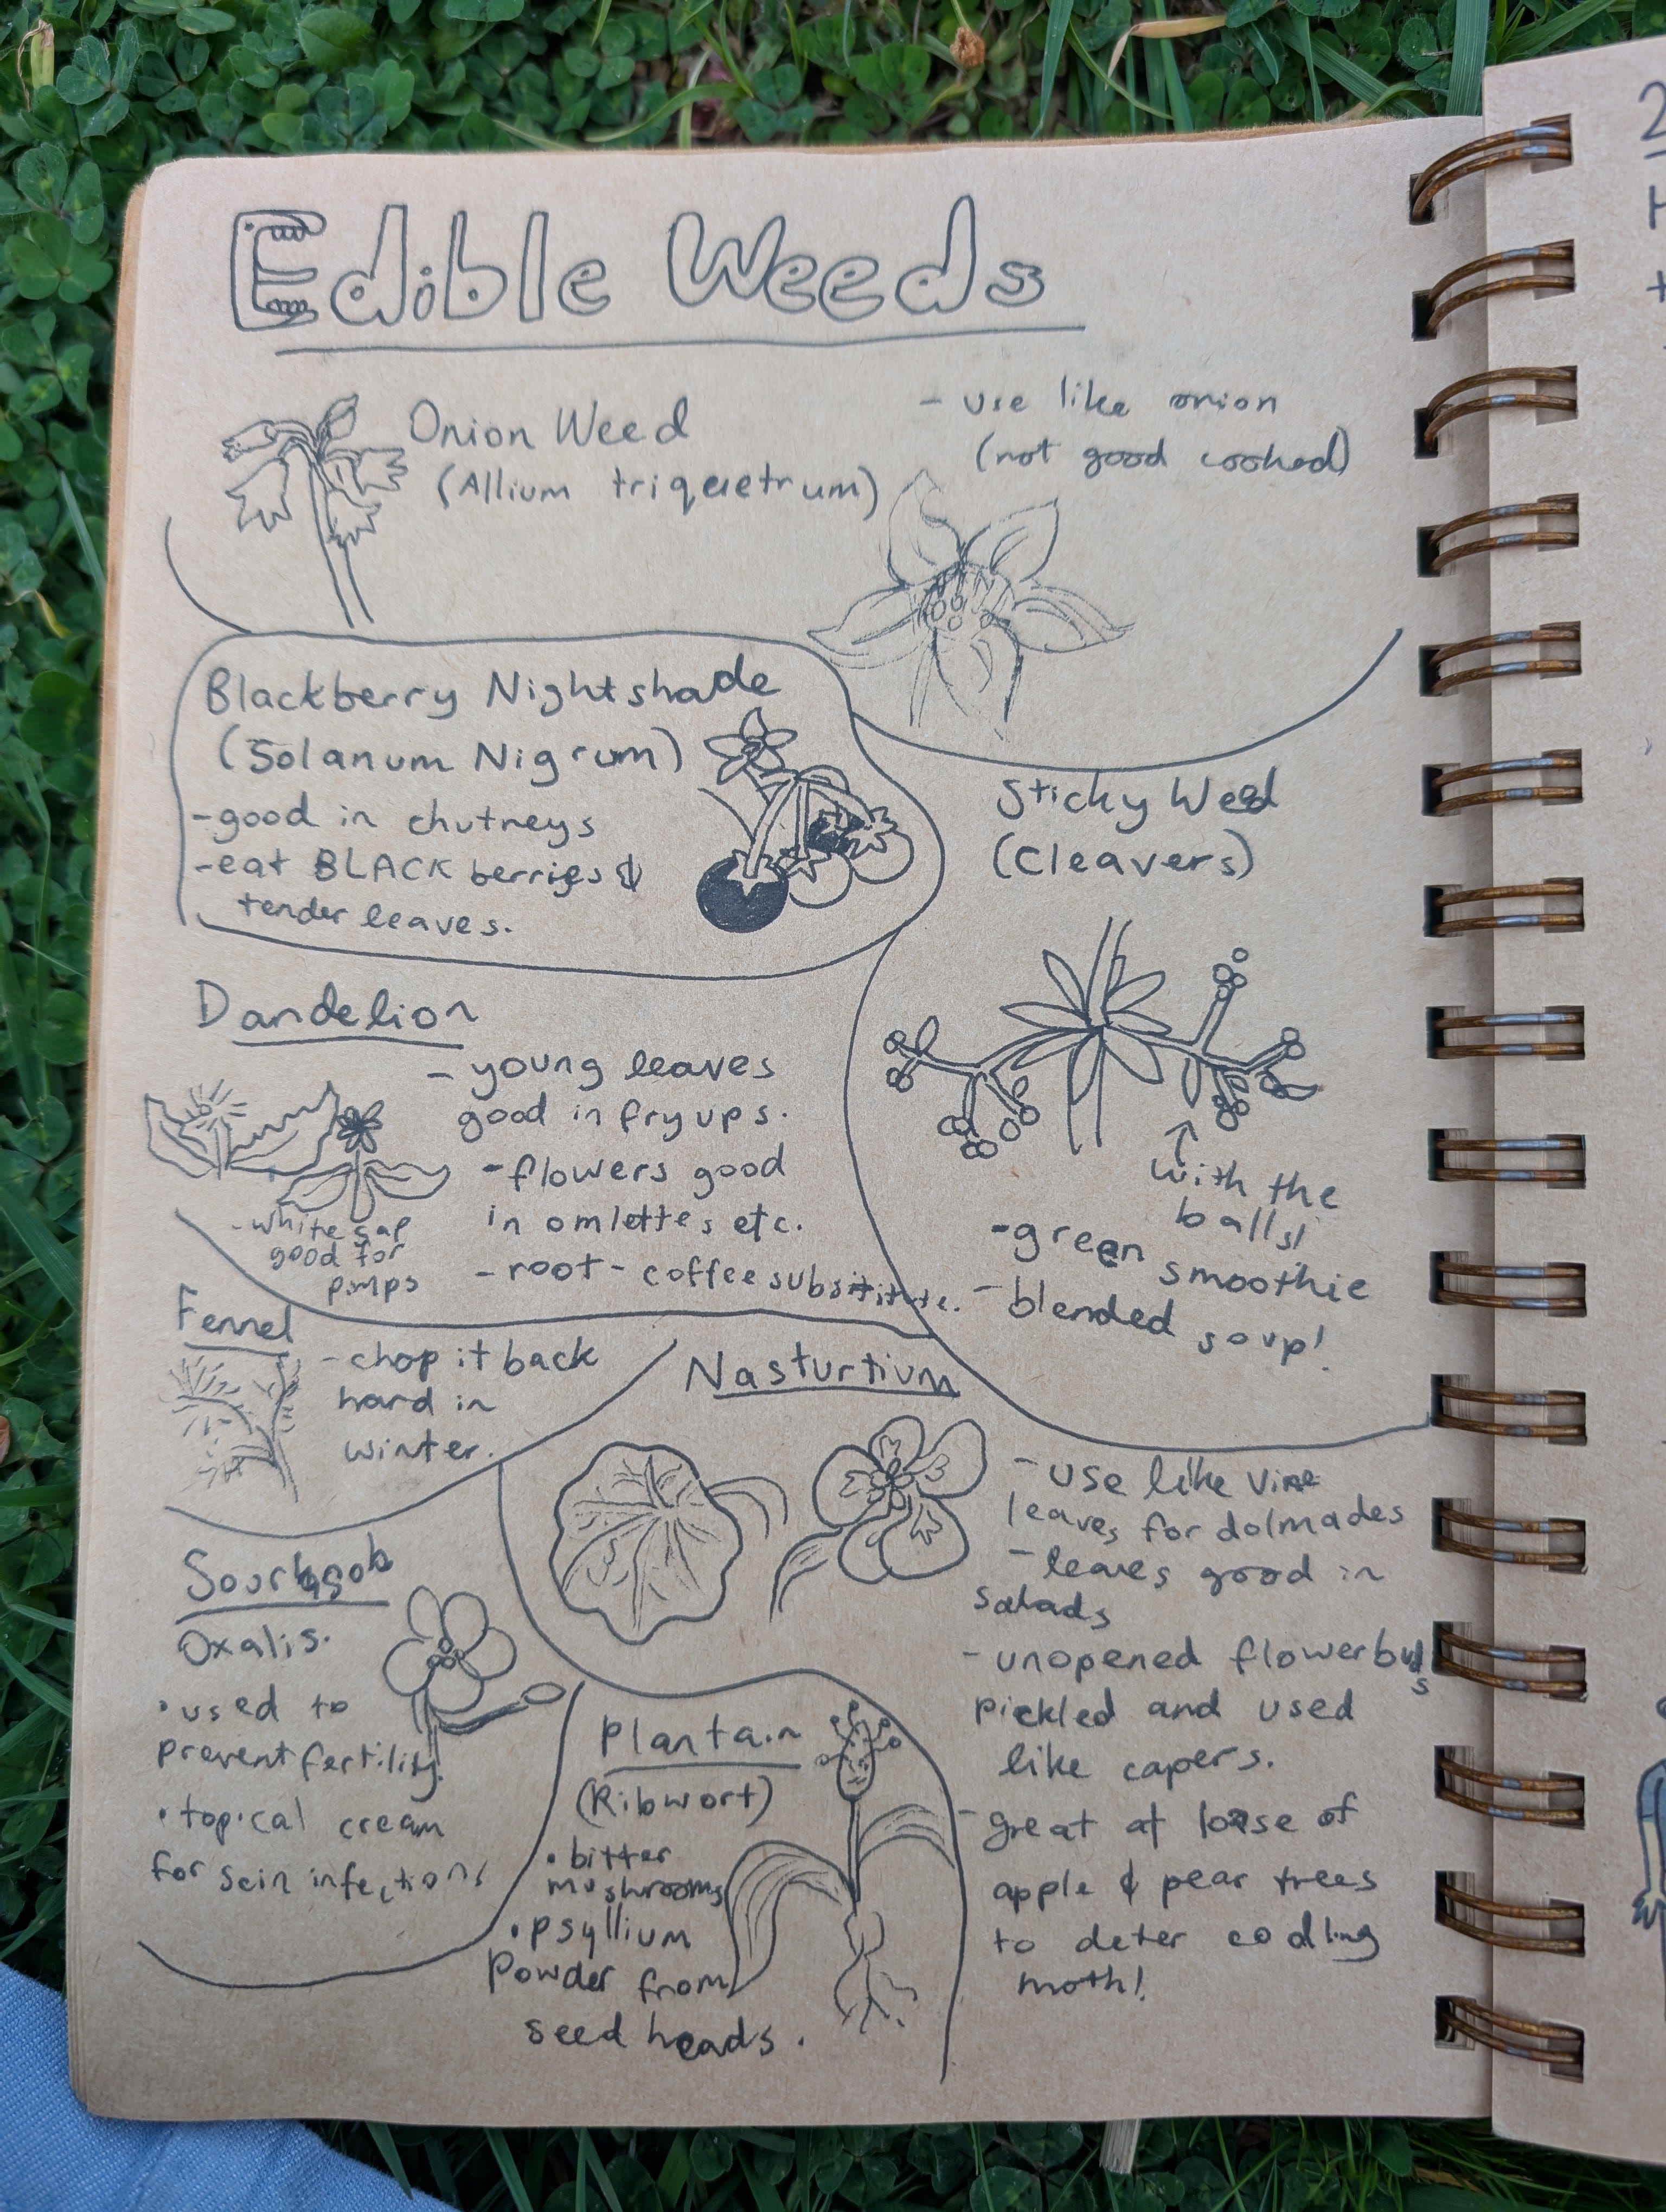 Edible Weeds
Onion Weed
(Allium triquetrum)
- use like onion
(not good cooked)
Blackberry Nightshade
(Solanum Nigrum)
- good in chutneys
- eat BLACK berries &
tender leaves.
Sticky Weed
(Cleavers)
with the
balls!
- green smoothie
- blended soup!
Dandelion
- young leaves
good in fry ups.
- flowers good
in omlettes etc.
- root - coffee substitute.
- white sap
good for
pimps
Fennel
- chop it back
hard in
winter.
Nasturtium
- use like vine
leaves for dolmades
- leaves good in
salads
- unopened flowerbuds
pickled and used
like capers.
- great at base of
apple & pear trees
to deter codling
moth!
Soursob
Oxalis.
• used to
prevent fertility.
• topical cream
for skin infections
Plantain
(Ribwort)
• bitter
mushrooms
• psyllium
powder from
seed heads.
2
H
+